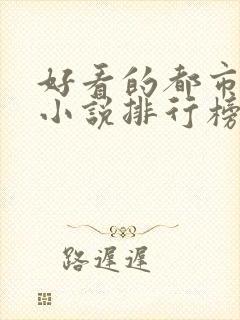 好看的都市
小说排行榜
路遲遲